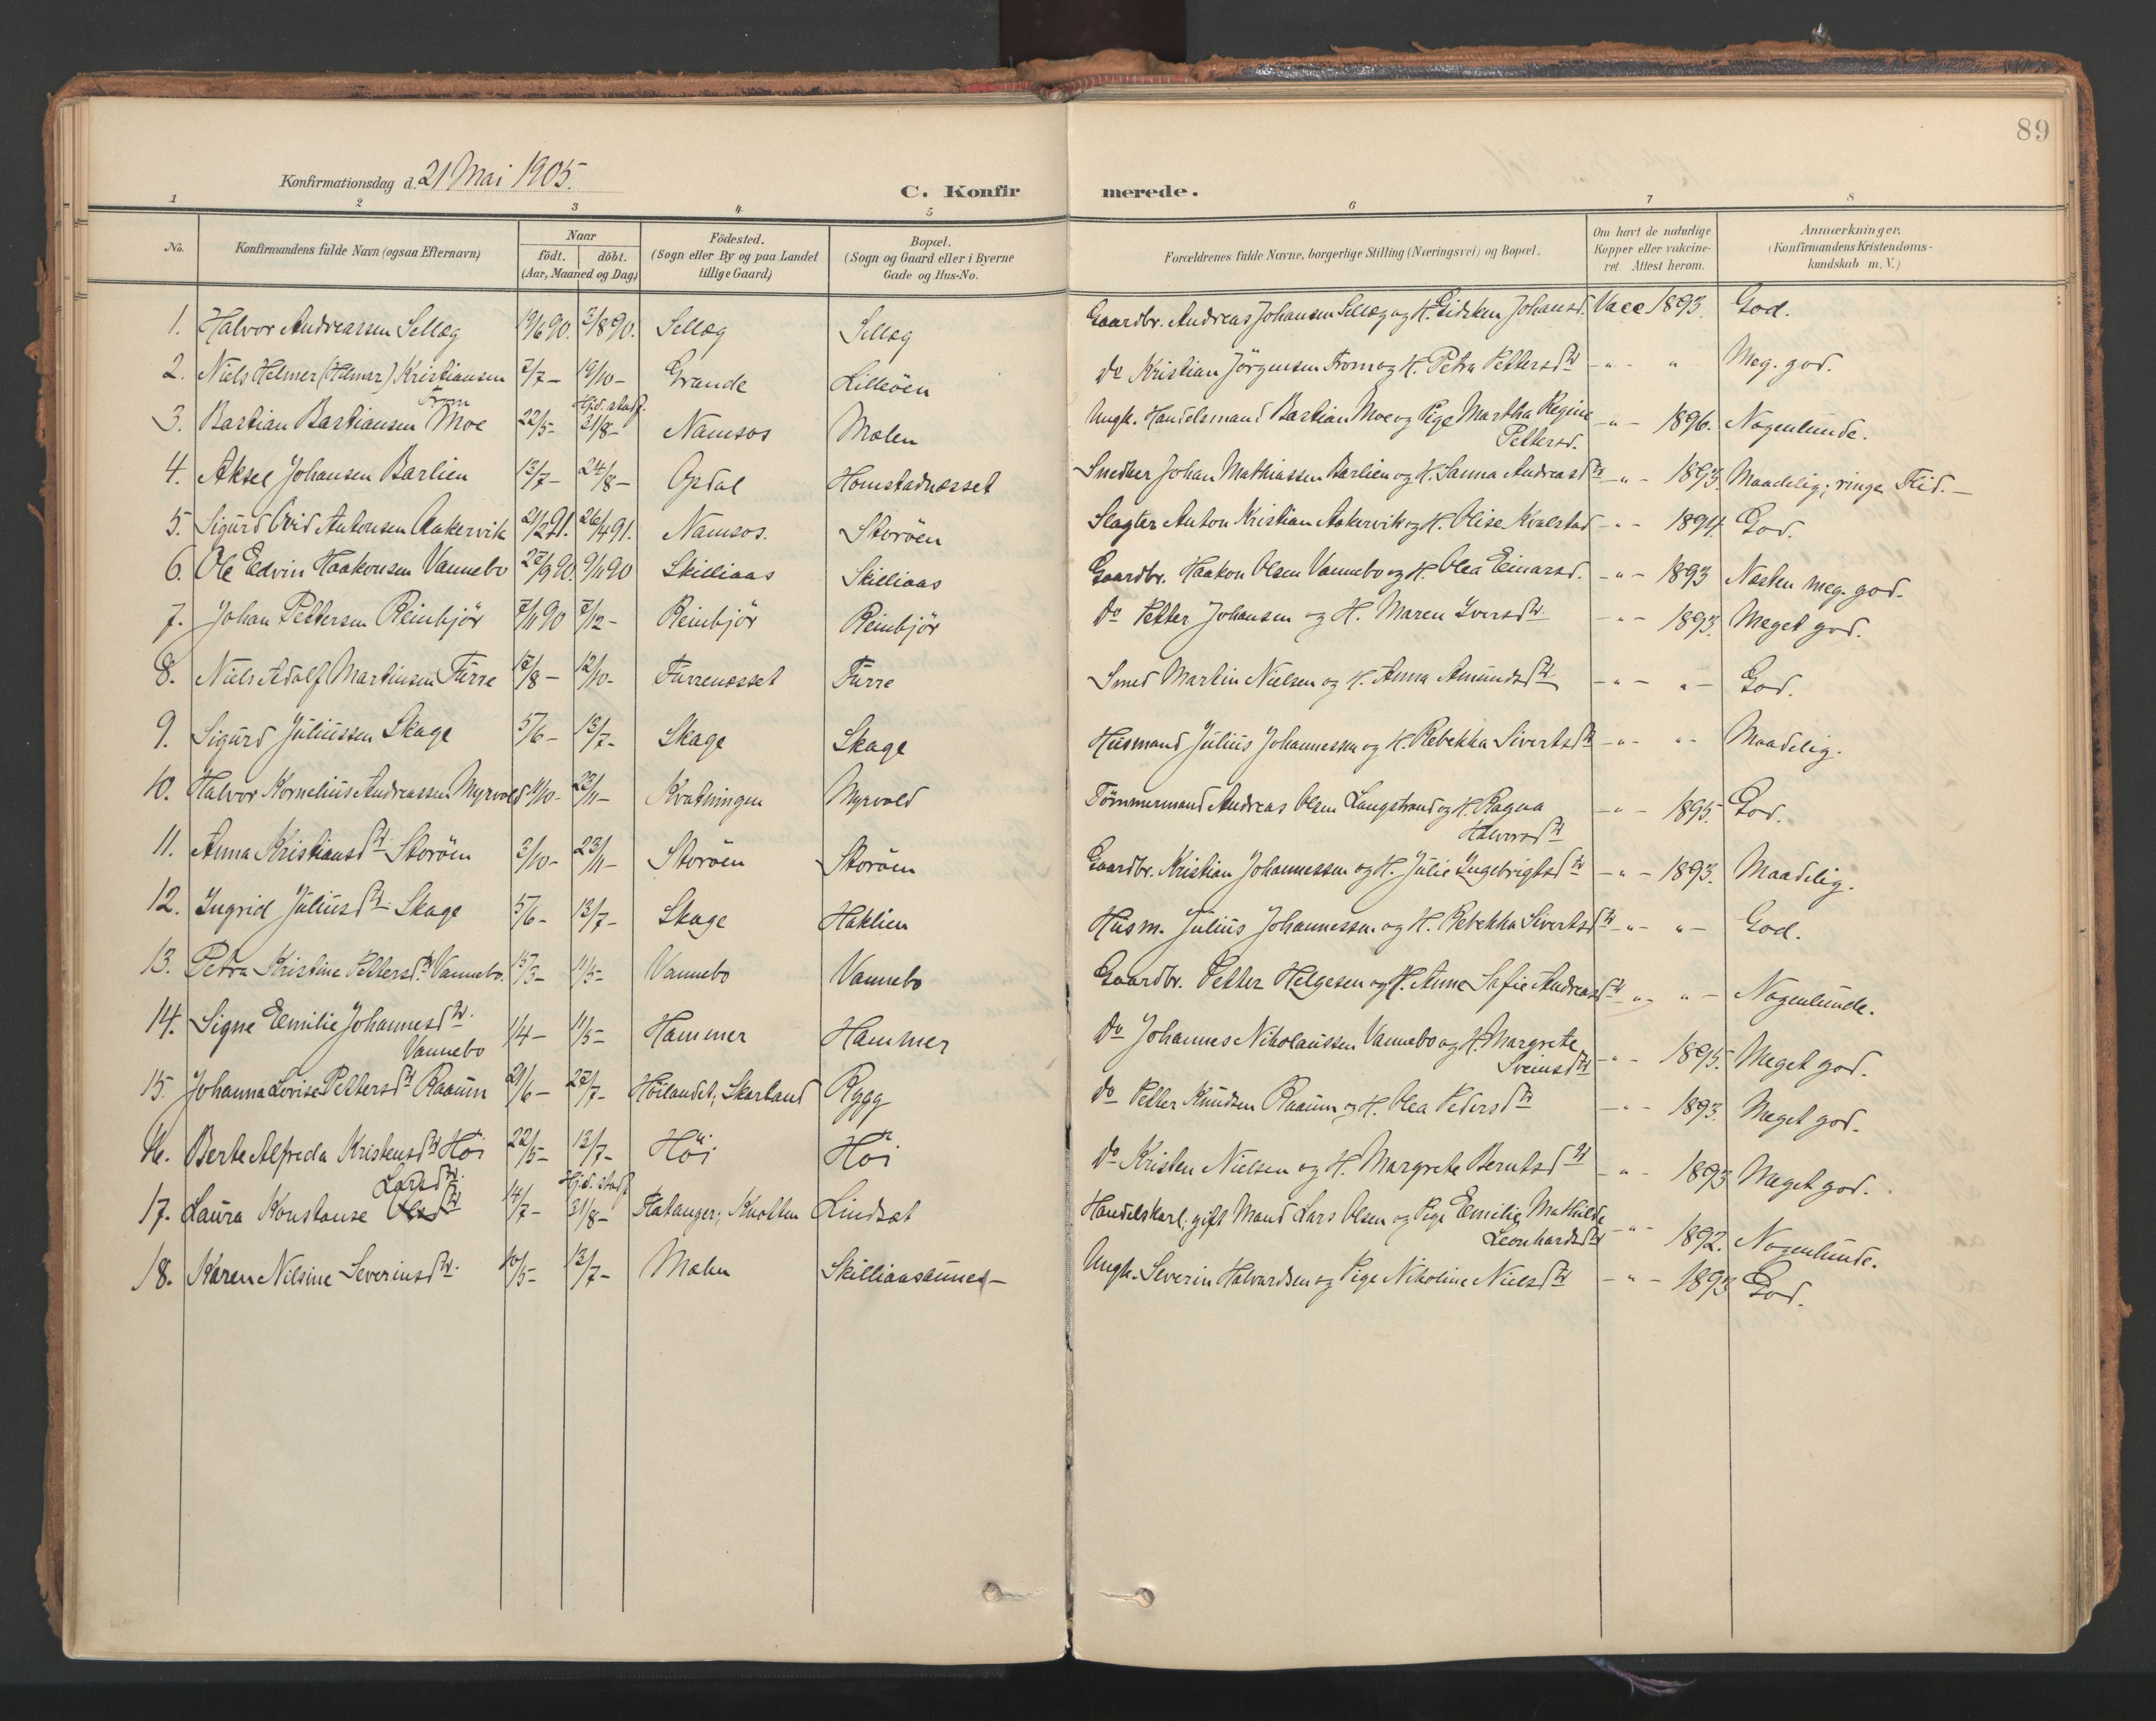 89
Konfirmationsdag d. 21 Mai 1905.
C. Konfirmerede.
1 2 3 4 5 6 7 8
No. Konfirmandens fulde Navn (ogsaa Efternavn) Naar født. døbt. (Aar, Maaned og Dag) Fødested. (Sogn eller By og paa Landet tillige Gaard) Bopæl. (Sogn og Gaard eller i Byerne Gade og Hus-No. Forældrenes fulde Navne, borgerlige Stilling (Næringsvei) og Bopæl. Om havt de naturlige Kopper eller vakcineret. Attest herom. Anmærkninger. (Konfirmandens Kristendomskundskab m. V.)
1. Halvor Andreassen Sellæg 19/6 90. 3/8 90. Sellæg Sellæg Gaardbr. Andreas Johansen Sellæg og H. Gidsken Johansd. Vacc. 1893. God.
2. Niels Helmer (Hilmar) Kristiansen From 2/7 – 19/10 – Grande Lilleöen Do Kristian Jörgensen From og H. Petra Pettersdtr – " – " Meg. god.
3. Bastian Bastiansen Moe 22/5 – Hjd. stadf. 31/8 – Namsos Moen Ungk. Handelsmand Bastian Moe og Pige Martha Regine Pettersd. – " – 1896. Nogenlunde.
4. Aksel Johansen Barlien 13/7 – 24/8 – Opdal Homstadnesset Snedker Johan Mathiassen Barlien og H. Sanna Andreasdtr – " – 1893. Maadelig; ringe Flid. –
5. Sigurd Ovid Antonsen Aakervik 21/2 91. 26/4 91. Namsos. Storöen Slagter Anton Kristian Aakervik og H. Olise Kvalstad – " – 1894. God.
6. Ole Edvin Haakonsen Vannebo 28/9 90. 9/11 90 Skilliaas Skilliaas Gaardbr. Haakon Olsen Vannebo og H. Olea Einarsd. – " – 1893 Næsten meg. god.
7. Johan Pettersen Reinbjör 7/11 90 7/12 – Reinbjör Reinbjör Do Petter Johansen og H. Maren Iversdtr – " – 1893. Meget god.
8. Niels Adolf Martinsen Furre 17/8 – 12/10 – Furrenesset Furre Smed Martin Nielsen og H. Anna Amundsdtr – " – " – God.
9. Sigurd Juliussen Skage 5/6 – 13/7 – Skage Skage Husmand Julius Johannessen og H. Rebekka Sivertsdtr – " – " – Maadelig.
10. Halvor Kornelius Andreassen Myrvold 11/10 – 23/11 – Kvatningen Myrvold Tömmermand Andreas Olsen Langstrand og H. Ragna Halvorsdtr – " – 1895. God.
11. Anna Kristiansdtr Storöen 3/10 – 23/11 – Storöen Storöen Gaardbr. Kristian Johannessen og H. Julie Ingebrigtsdtr – " – 1893. Maadelig.
12. Ingrid Juliusdtr Skage 5/6 – 13/7 – Skage Haklien Husm. Julius Johannessen og H. Rebekka Sivertsdtr – " – " – God.
13. Petra Kristine Pettersdtr Vannebo. 15/3 – 11/5 – Vannebo Vannebo Gaardbr. Petter Helgesen og H. Anne Safie Andreasdtr " – " – Nogenlunde.
14. Signe Emilie Johannesdtr Vannebo 1/4 – 11/5 – Hammer Hammer Do Johannes Nikolaissen Vannebo og H. Margrete Sveinsdtr – " – 1895. Meget god.
15. Johanna Lovise Pettersdtr Raaum 21/6 – 27/7 – Höilandet; Skarland Rygg Do Petter Knudsen Raaum og H. Olea Pedersdtr – " – 1893. Meget god.
16. Berte Alfreda Kristensdtr Höi 22/5 – 13/7 – Höi Höi Do Kristen Nielsen og H. Margrete Berntsdtr – " – 1893 Meget god.
17. Laura Konstanse Olsdtr Larsdtr. 14/7 – Hjd. stadf. 31/8 – Flatanger; Knotten Lindsæt Handelskarl; gift Mand Lars Olsen og Pige Emilie Mathilde Leonhardsdtr – " – 1892. Nogenlunde.
18. Karen Nilsine Severinsdtr. 10/5 – 13/7 – Moen Skilliaasaunet – Ungk. Severin Halvardsen og Pige Nikoline Nielsdtr – " – 1893 God.